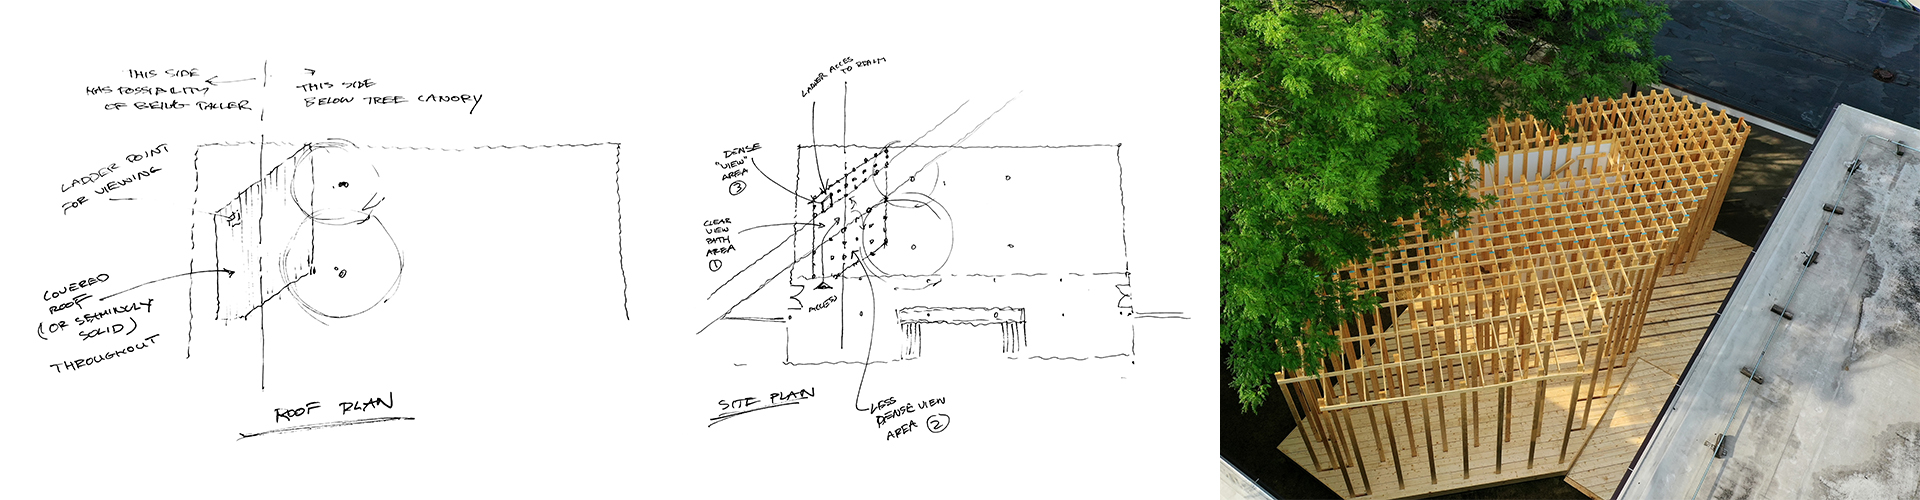 THIS SIDE
HAS POSSIBILITY
OF BEING TALLER
THIS SIDE
BELOW TREE CANOPY
LADDER POINT
FOR VIEWING
COVERED
ROOF
(OR SEEMINGLY
SOLID)
THROUGHOUT
ROOF PLAN
LADDER ACCES
TO BEAM
DENSE
"VIEW"
AREA
③
CLEAR
VIEW
PATH
AREA
①
ACCESS
SITE PLAN
LESS
DENSE VIEW
AREA ②